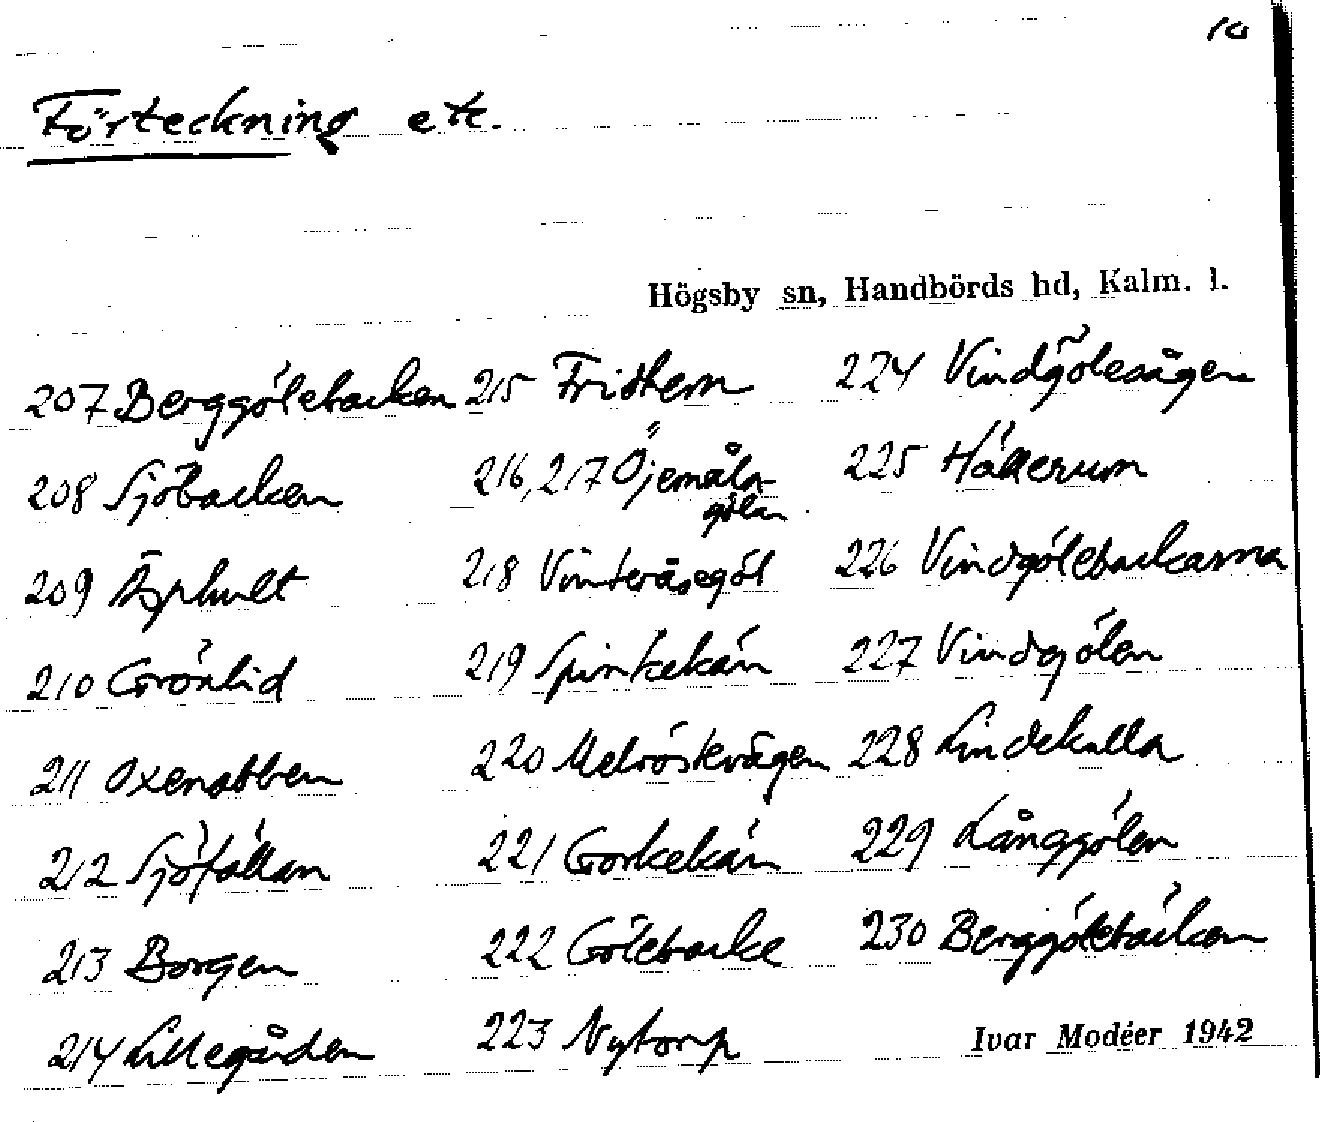 10
Förteckning etc.
Högsby sn, Handbörds hd, Kalm. l.
207 Berggölebacken
208 Sjöbacken
209 Äsphult
210 Grönlid
211 Oxenabben
212 Sjöfállan
213 Borgen
214 Lillegården
215 Fridhem
216, 217 Öjemåla-
gölen
218 Vinteråsegöl
219 Spinkekärr
220
221 Gorkekärr
222 Gölebacke
223 Nytorp
224 Vindgölesågen
225 Hällerum
226 Vindgölebackarna
227 Vindgölen
228 Lindekulla
229 Långgölen
230 Berggölebäcken
Ivar Modéer 1942